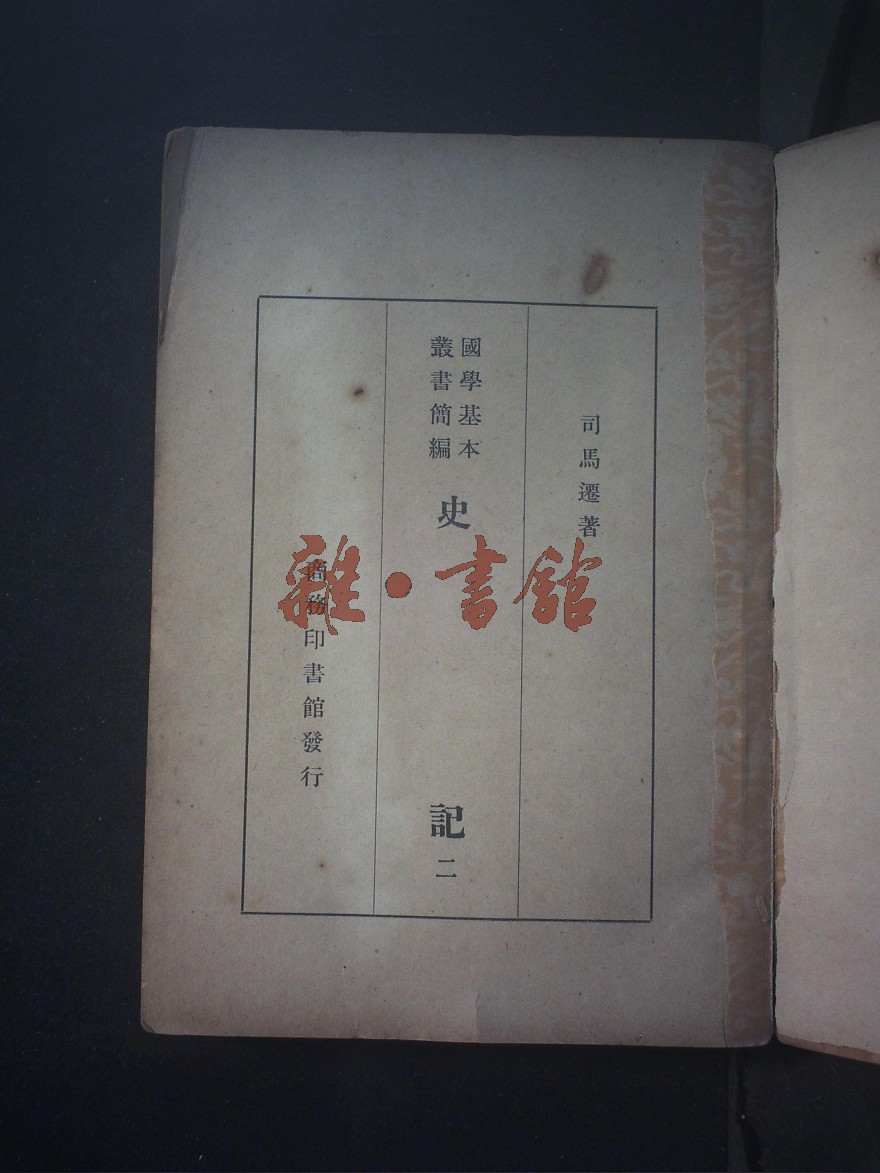 司馬遷著
國學基本
叢書簡編
史記二
商務印書館發行
雜·書館